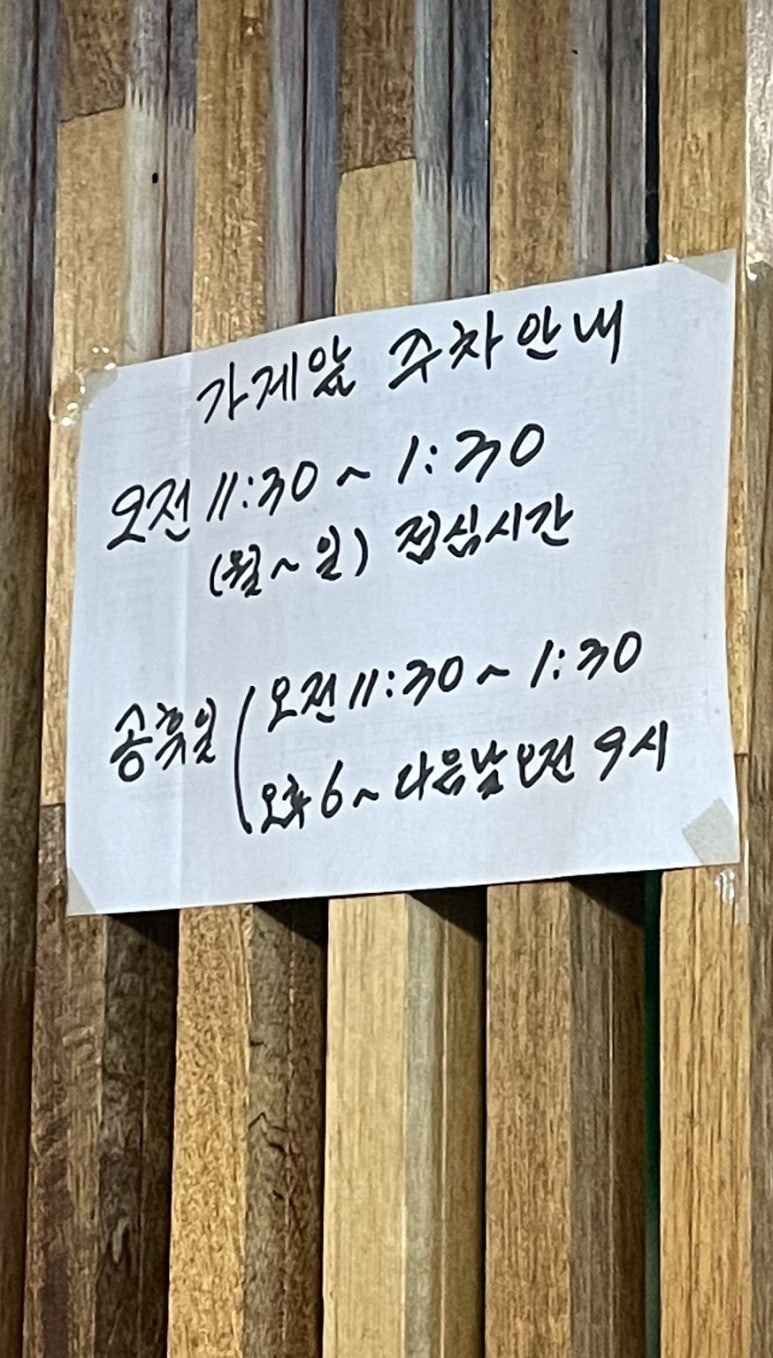 가게앞 주차안내
오전 11:30 ~ 1:30
(월~일) 점심시간
공휴일 ( 오전 11:30 ~ 1:30
오후 6 ~ 다음날 오전 9시